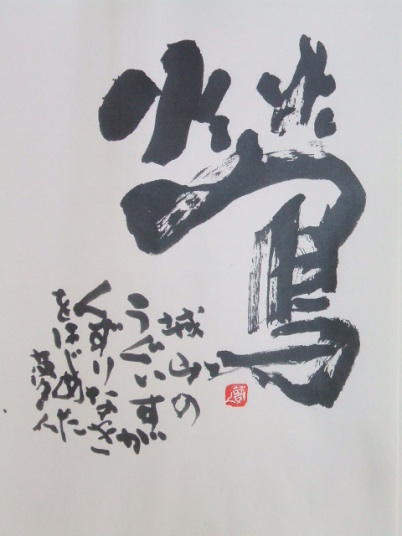 鶯
城山の
うぐいすが
くずりなき
をはじめた
夢人